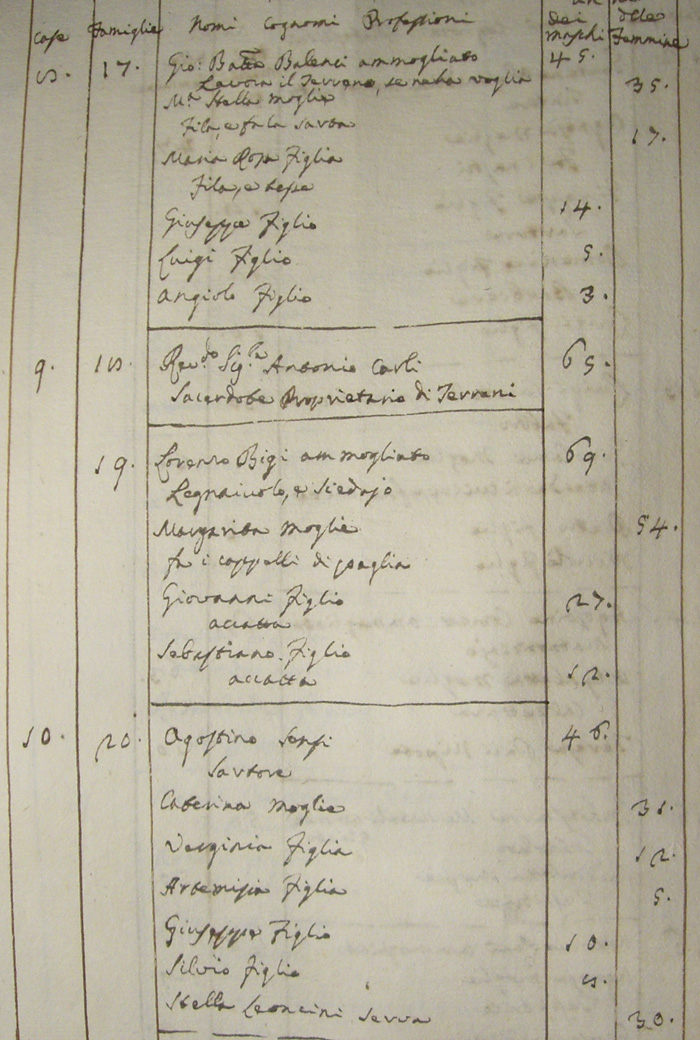 case Famiglie Nomi Cognomi Professioni dei maschi delle Femmine
8. 17. Gio: Batta Balenci ammogliato 45.
Lavora il Terreno, se ne ha voglia
M.a Stella moglie 35.
Fila, e fa la sarta
Maria Rosa Figlia 17.
Fila, e tesse
Giuseppe Figlio 14.
Luigi Figlio 5.
Angiolo Figlio 3.
9. 18. Rev.do Sig.re Antonio Carli 65.
Sacerdote Proprietario di Terreni
19. Lorenzo Bigi ammogliato 69.
Legnaiuolo, e Siedajo
Margarita moglie 54.
fa i cappelli di paglia
Giovanni Figlio 27.
accatta
Sebastiano Figlio 12.
accatta
10. 20. Agostino Sensi 46.
Sartore
Caterina moglie 31.
Verginia Figlia 12.
Artemisia Figlia 5.
Giuseppe Figlio 10.
Silvio Figlio 8.
Stella Leoncini Serva 30.